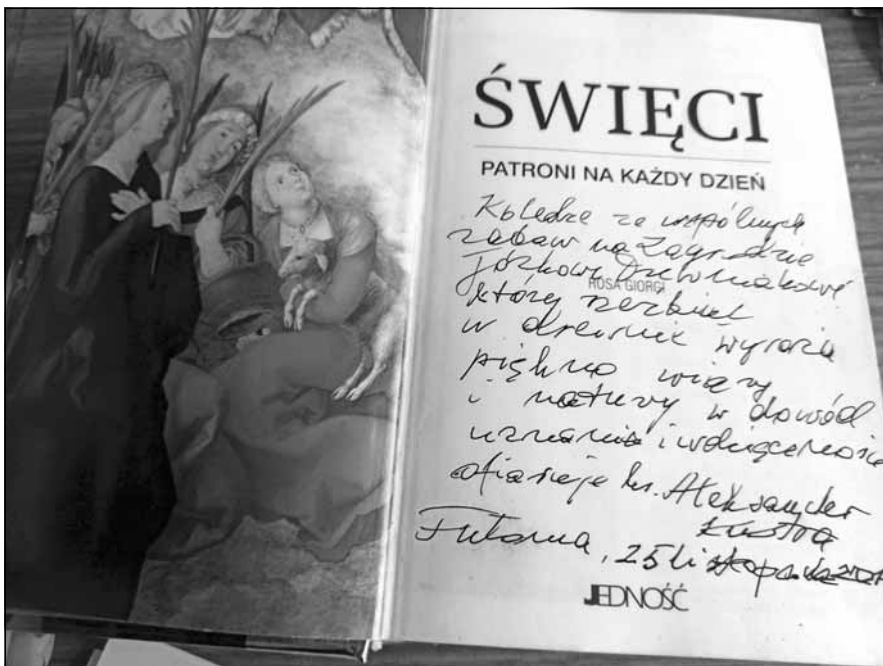 ŚWIĘCI
PATRONI NA KAŻDY DZIEŃ
Koledze ze wspólnych
zabaw na Zagrodzie
Józkowi
ROSA GIORGI
który
w drewnie wyraża
piękno wiary
i natury w dowód
uznania i wdzięczności
ofiaruje ks. Aleksander
Kustra
Futoma, 25 listopada
JEDNOŚĆ